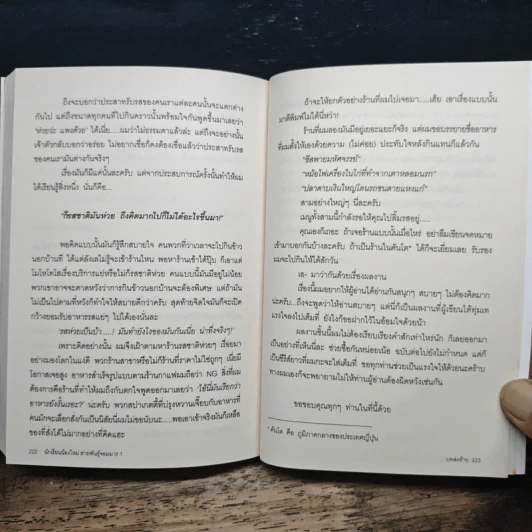 ถึงจะบอกว่าประสาทรับรสของคนเราแต่ละคนนั้นจะแตกต่าง
กันไป แต่ถึงขนาดทุกคนที่ไปกินคราวนั้นพร้อมใจกันพูดขึ้นมาเลยว่า
'ห่วยว่ะ แพงด้วย' ได้เนี่ย.....ผมว่าไม่ธรรมดาแล้วล่ะ แต่ถึงจะอย่างนั้น
เจ้าตัวกลับบอกว่าอร่อย ไม่อยากเชื่อก็คงต้องเชื่อแล้วว่าประสาทรับรส
ของคนเรามันต่างกันจริงๆ
เรื่องมันก็มีแค่นั้นละครับ แต่จากประสบการณ์ครั้งนั้นทำให้ผม
ได้เรียนรู้สิ่งหนึ่ง นั่นก็คือ...
"ก็รสชาติมันห่วย ถึงคิดมากไปก็ไม่ได้อะไรขึ้นมา!"
พอคิดแบบนั้นมันก็รู้สึกสบายใจ คนพวกที่ว่าเวลาจะไปกินข้าว
นอกบ้านที ได้แต่ลังเลไม่รู้จะเข้าร้านไหน พอหาร้านเข้าได้ปุ๊บ ก็เอาแต่
โมโหโทโสเรื่องบริการแย่หรือไม่ก็รสชาติห่วย คนแบบนี้มันมีอยู่ไม่น้อย
พวกเขาอาจจะคาดหวังว่าการกินข้าวนอกบ้านจะต้องพิเศษ แต่ถ้ามัน
ไม่เป็นไปตามที่หวังก็ทำใจให้สบายดีกว่าครับ สุดท้ายจิตใจมันก็จะเปิด
กว้างยอมรับอาหารรสแย่ๆ ไปได้เองนั่นละ
'รสห่วยเป็นบ้า.....! มันทำยังไงของมันกันเนี่ย น่าทึ่งจริงๆ!'
เพราะคิดอย่างนั้น ผมจึงเฝ้าตามหาร้านรสชาติห่วยๆ เรื่อยมา
อย่างมองโลกในแง่ดี พวกร้านสาขาหรือไม่ก็ร้านที่ราคาไม่ใช่ถูกๆ เนี่ยมี
โอกาสเจอสูง อาหารสำเร็จรูปแบบตามร้านกาแฟผมถือว่า NG สิ่งที่ผม
ต้องการคือร้านที่ทำให้ผมถึงกับตกใจพูดออกมาเลยว่า 'ไอ้นี่มันเรียกว่า
อาหารยังงั้นเรอะ?' น่ะครับ พวกสปาเกตตีที่ปรุงหวานเจี๊ยบกับอาหารที่
คนมักจะเลือกสั่งกันเป็นนิสัยนี่ผมไม่ขอนับนะ.....พอเอาเข้าจริงมันก็เหลือ
ของที่สั่งได้ไม่มากอย่างที่คิดแฮะ
222 นักเรียนน้องใหม่ สายพันธุ์จอมมาร 1
ถ้าจะให้ยกตัวอย่างร้านที่ผมไปเจอมา.....เฮ้ย เอาเรื่องแบบนั้น
มาตีพิมพ์ไม่ได้นี่หว่า!
ร้านที่ผมลองมันมีอยู่เยอะแยะก็จริง แต่ผมขอบรรยายชื่ออาหาร
ที่ผมตั้งให้เองด้วยความ (ไม่ค่อย) ประทับใจหลังกินแทนก็แล้วกัน
"ชีสพายมหัศจรรย์"
"หม้อไฟเครื่องในไก่ที่ทำจากเตาหลอมนรก"
"ปลาดาบเงินใหญ่โดนรถชนตายแหงแก๋"
สามอย่างใหญ่ๆ นี่ละครับ
เมนูทั้งสามนี้กำลังรอให้คุณไปลิ้มรสอยู่.....
คุณเองก็เถอะ ถ้าเจอร้านแบบนั้นเมื่อไหร่ อย่าลืมเขียนจดหมาย
เข้ามาบอกกันบ้างละครับ ถ้าเป็นร้านในคันโต* ได้ก็จะเยี่ยมเลย รับรอง
ผมจะไปกินให้ได้สักวัน
เอ- มาว่ากันด้วยเรื่องผลงาน
เรื่องนี้ผมอยากให้ผู้อ่านได้อ่านกันสนุกๆ สบายๆ ไม่ต้องคิดมาก
น่ะครับ...ถึงจะพูดว่าให้อ่านสบายๆ แต่นี่ก็เป็นผลงานที่ผู้เขียนได้ทุ่มเท
แรงใจลงไปเต็มที่ ยังไงก็ขอฝากไว้ในอ้อมใจด้วยน้า
ผลงานชิ้นนี้ผมไม่ต้องเรียบเรียงคำสักเท่าไหร่นัก ก็เลยออกมา
เป็นอย่างที่เห็นนี่ละ ช่วยซื้อกันหน่อยเน้อ ฉบับต่อไปยังไม่กำหนด แต่ก็
เป็นซีรีส์ยาวที่ผมกะจะใส่เต็มที่ ขอทุกท่านช่วยเป็นแรงใจให้ด้วยนะคร้าบ
ทางผมเองก็จะพยายามไม่ให้ท่านผู้อ่านต้องผิดหวังเช่นกัน
ขอขอบคุณทุกๆ ท่านในที่นี้ด้วย
* คันโต คือ ภูมิภาคกลางของประเทศญี่ปุ่น
บทส่งท้าย 223